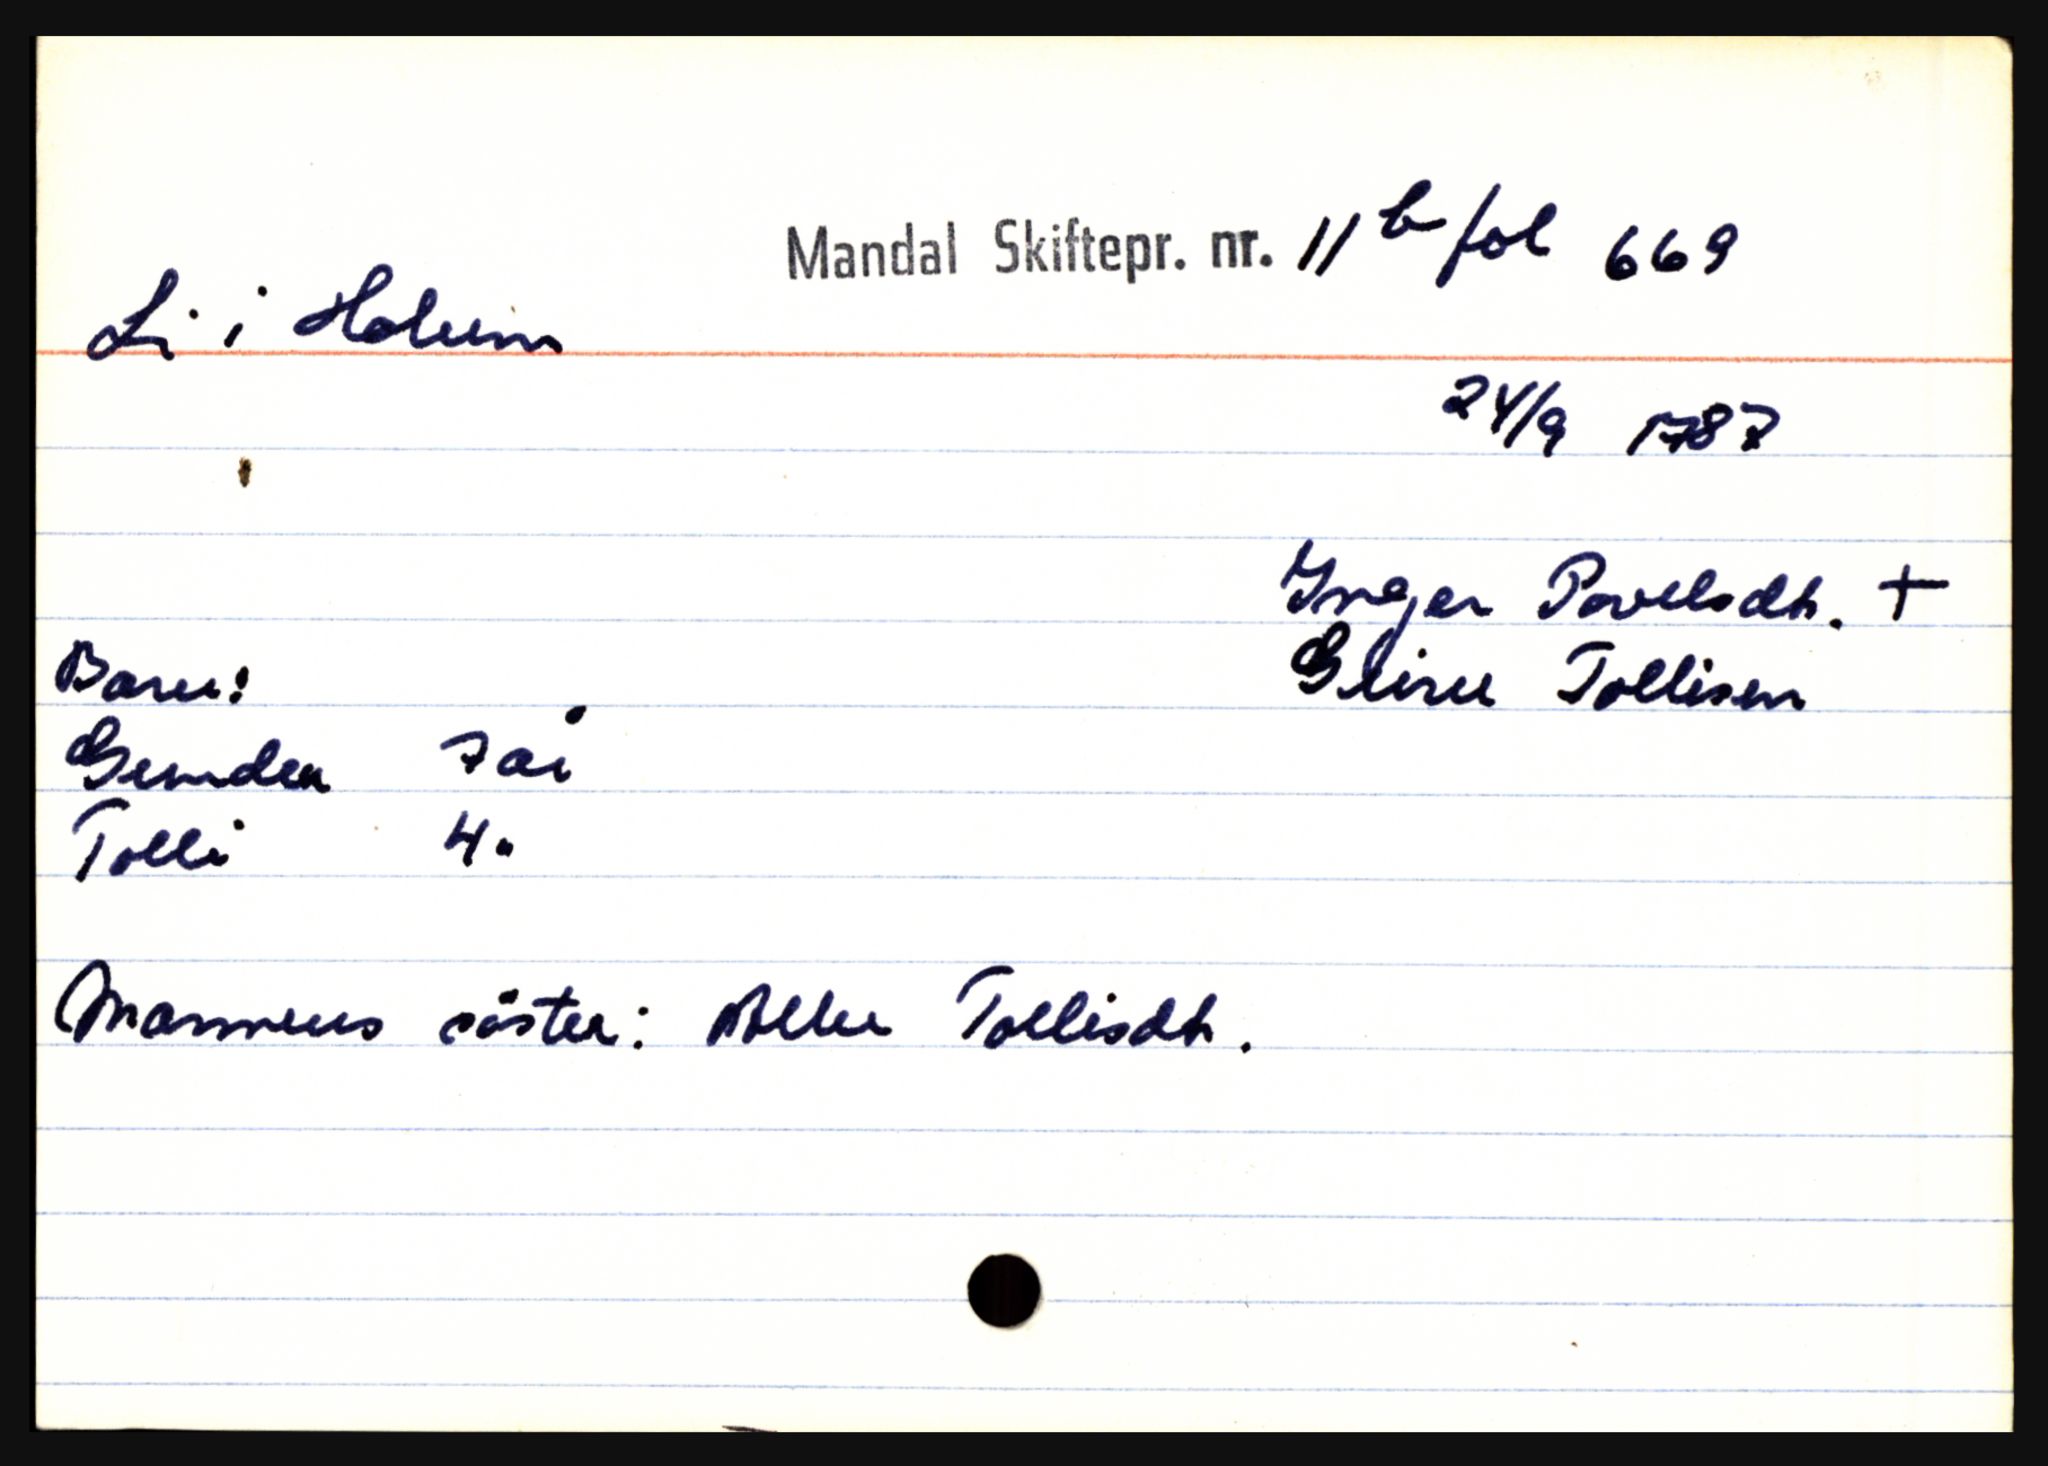 Mandal Skiftepr. nr. 11 b fol 669
Li i Holum
24/9 1787
Inger Povelsdtr. +
Barn:
Tollisen
7 år
Tolli 4 "
Mannens söster: Tollisdtr.